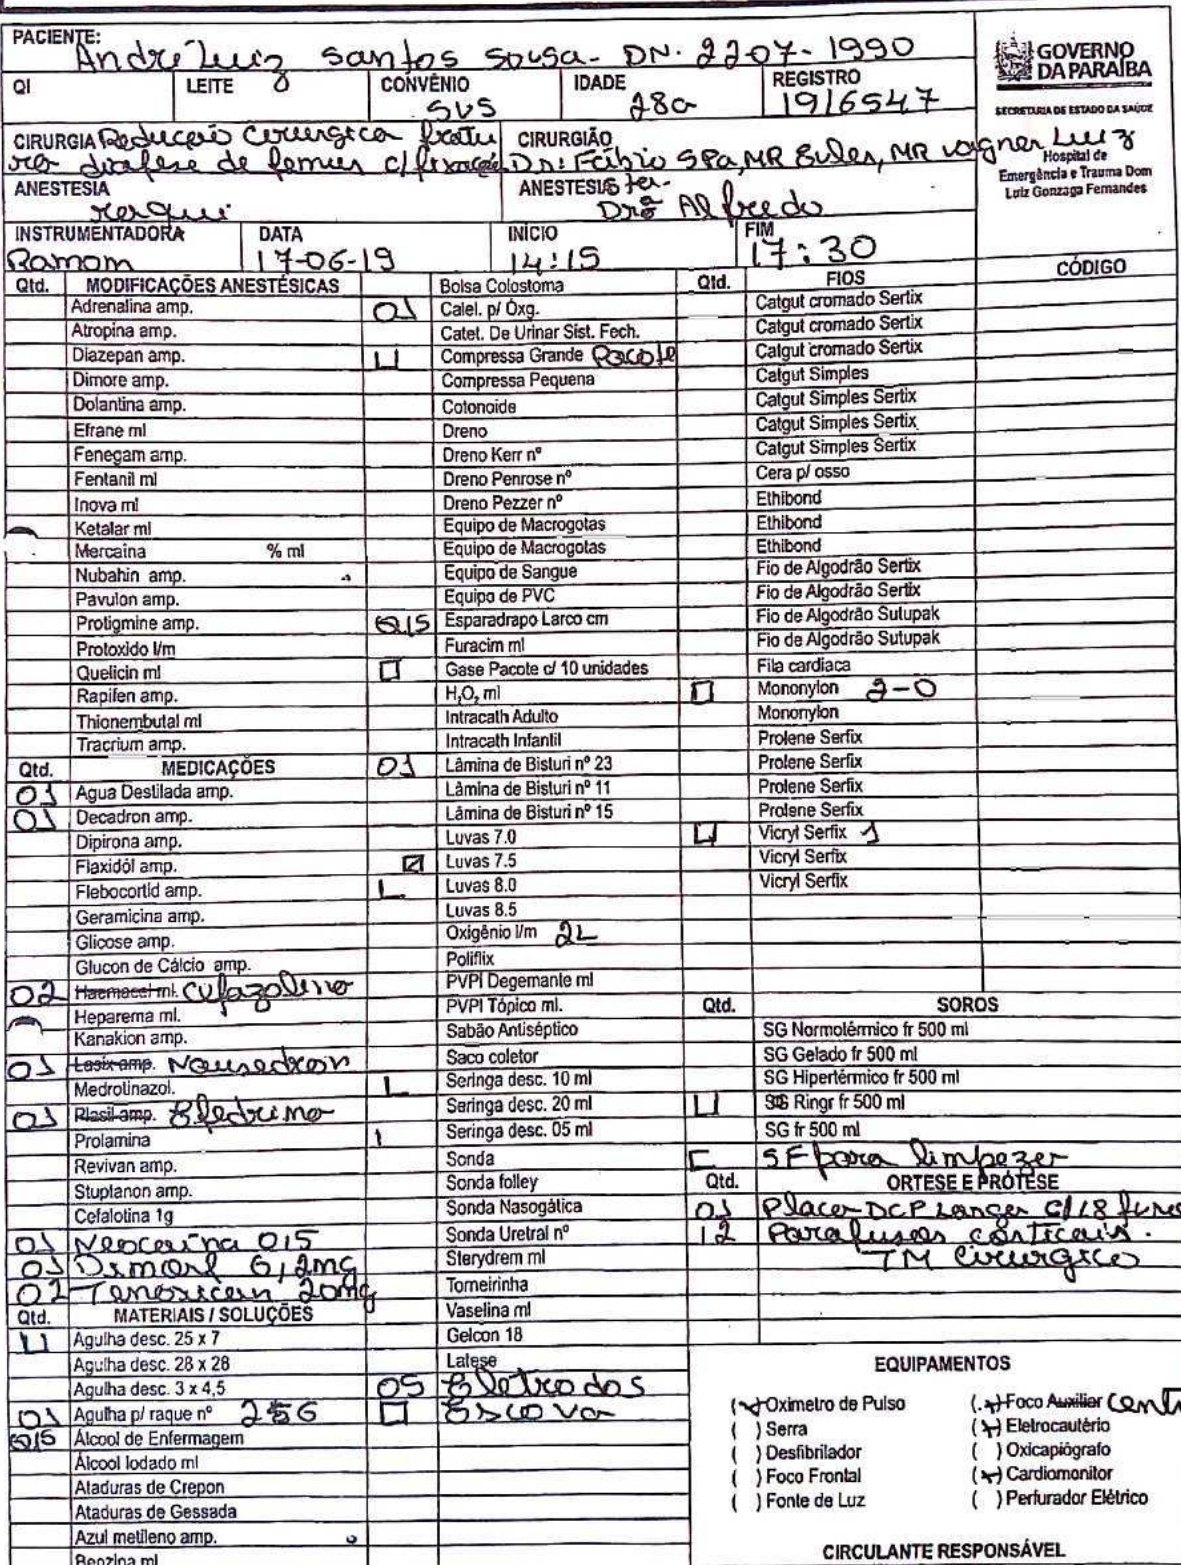 PACIENTE: André Luiz Santos Sousa - DN. 22 07 - 1990
GOVERNO DA PARAÍBA
SECRETARIA DE ESTADO DA SAÚDE
Hospital de Emergência e Trauma Dom Luiz Gonzaga Fernandes
QI LEITE CONVÊNIO SUS IDADE 28a REGISTRO 1916547
CIRURGIA Redução Cirurgica fratu
ra diafise de femur c/ fixação
CIRURGIÃO Dr: Fábio SPa, MR Eules, MR Wagner Luiz
ANESTESIA raqui
ANESTESISTA Drº Alfredo
INSTRUMENTADORA Ramom DATA 17-06-19 INÍCIO 14:15 FIM 17:30
Qtd. MODIFICAÇÕES ANESTÉSICAS
Adrenalina amp.
Atropina amp.
Diazepan amp.
Dimore amp.
Dolantina amp.
Efrane ml
Fenegam amp.
Fentanil ml
Inova ml
Ketalar ml
Mercaina % ml
Nubahin amp.
Pavulon amp.
Protigmine amp.
Protoxido l/m
Quelicin ml
Rapifen amp.
Thionembutal ml
Tracrium amp.
Qtd. MEDICAÇÕES
01 Agua Destilada amp.
01 Decadron amp.
Dipirona amp.
Flaxidól amp.
Flebocortid amp.
Geramicina amp.
Glicose amp.
Glucon de Cálcio amp.
02 Haemacel ml. Cefazolina
Heparema ml.
Kanakion amp.
01 Lasix amp. Nausedron
Medrolinazol.
01 Plasil amp. Efedrina
Prolamina
Revivan amp.
Stuplanon amp.
Cefalotina 1g
01 Neocaina 0,5
01 Dimorf 0,2mg
02 Tenoxicam 20mg
Qtd. MATERIAIS / SOLUÇÕES
Agulha desc. 25 x 7
Agulha desc. 28 x 28
Agulha desc. 3 x 4,5
01 Agulha p/ raque nº 25G
Álcool de Enfermagem
Álcool Iodado ml
Ataduras de Crepon
Ataduras de Gessada
Azul metileno amp.
Benzina ml
Bolsa Colostoma
01 Catel. p/ Óxg.
Catet. De Urinar Sist. Fech.
Compressa Grande Pacote
Compressa Pequena
Cotonoide
Dreno
Dreno Kerr nº
Dreno Penrose nº
Dreno Pezzer nº
Equipo de Macrogotas
Equipo de Macrogotas
Equipo de Sangue
Equipo de PVC
Esparadrapo Larco cm
Furacim ml
Gase Pacote c/ 10 unidades
H₂O₂ ml
Intracath Adulto
Intracath Infantil
01 Lâmina de Bisturi nº 23
Lâmina de Bisturi nº 11
Lâmina de Bisturi nº 15
Luvas 7.0
Luvas 7.5
Luvas 8.0
Luvas 8.5
Oxigênio l/m 2L
Poliflix
PVPI Degemante ml
PVPI Tópico ml.
Sabão Antiséptico
Saco coletor
Seringa desc. 10 ml
Seringa desc. 20 ml
Seringa desc. 05 ml
Sonda
Sonda folley
Sonda Nasogática
Sonda Uretral nº
Sterydrem ml
Torneirinha
Vaselina ml
Gelcon 18
Latese
05 Eletrodos
Escova
Qtd. FIOS CÓDIGO
Catgut cromado Sertix
Catgut cromado Sertix
Catgut cromado Sertix
Catgut Simples
Catgut Simples Sertix
Catgut Simples Sertix
Catgut Simples Sertix
Cera p/ osso
Ethibond
Ethibond
Ethibond
Fio de Algodrão Sertix
Fio de Algodrão Sertix
Fio de Algodrão Sutupak
Fio de Algodrão Sutupak
Fita cardiaca
Mononylon 2-0
Mononylon
Prolene Serfix
Prolene Serfix
Prolene Serfix
Prolene Serfix
Vicryl Serfix 1
Vicryl Serfix
Vicryl Serfix
Qtd. SOROS
SG Normotérmico fr 500 ml
SG Gelado fr 500 ml
SG Hipertérmico fr 500 ml
SG Ringr fr 500 ml
SG fr 500 ml
SF para limpeza
Qtd. ORTESE E PRÓTESE
01 Placa DCP Longa c/ 18 furos
12 Parafusos corticais.
TM Cirurgico
EQUIPAMENTOS
(x) Oximetro de Pulso
( ) Serra
( ) Desfibrilador
( ) Foco Frontal
( ) Fonte de Luz
(x) Foco Auxiliar Cent
(x) Eletrocautério
( ) Oxicapiógrafo
(x) Cardiomonitor
( ) Perfurador Elétrico
CIRCULANTE RESPONSÁVEL